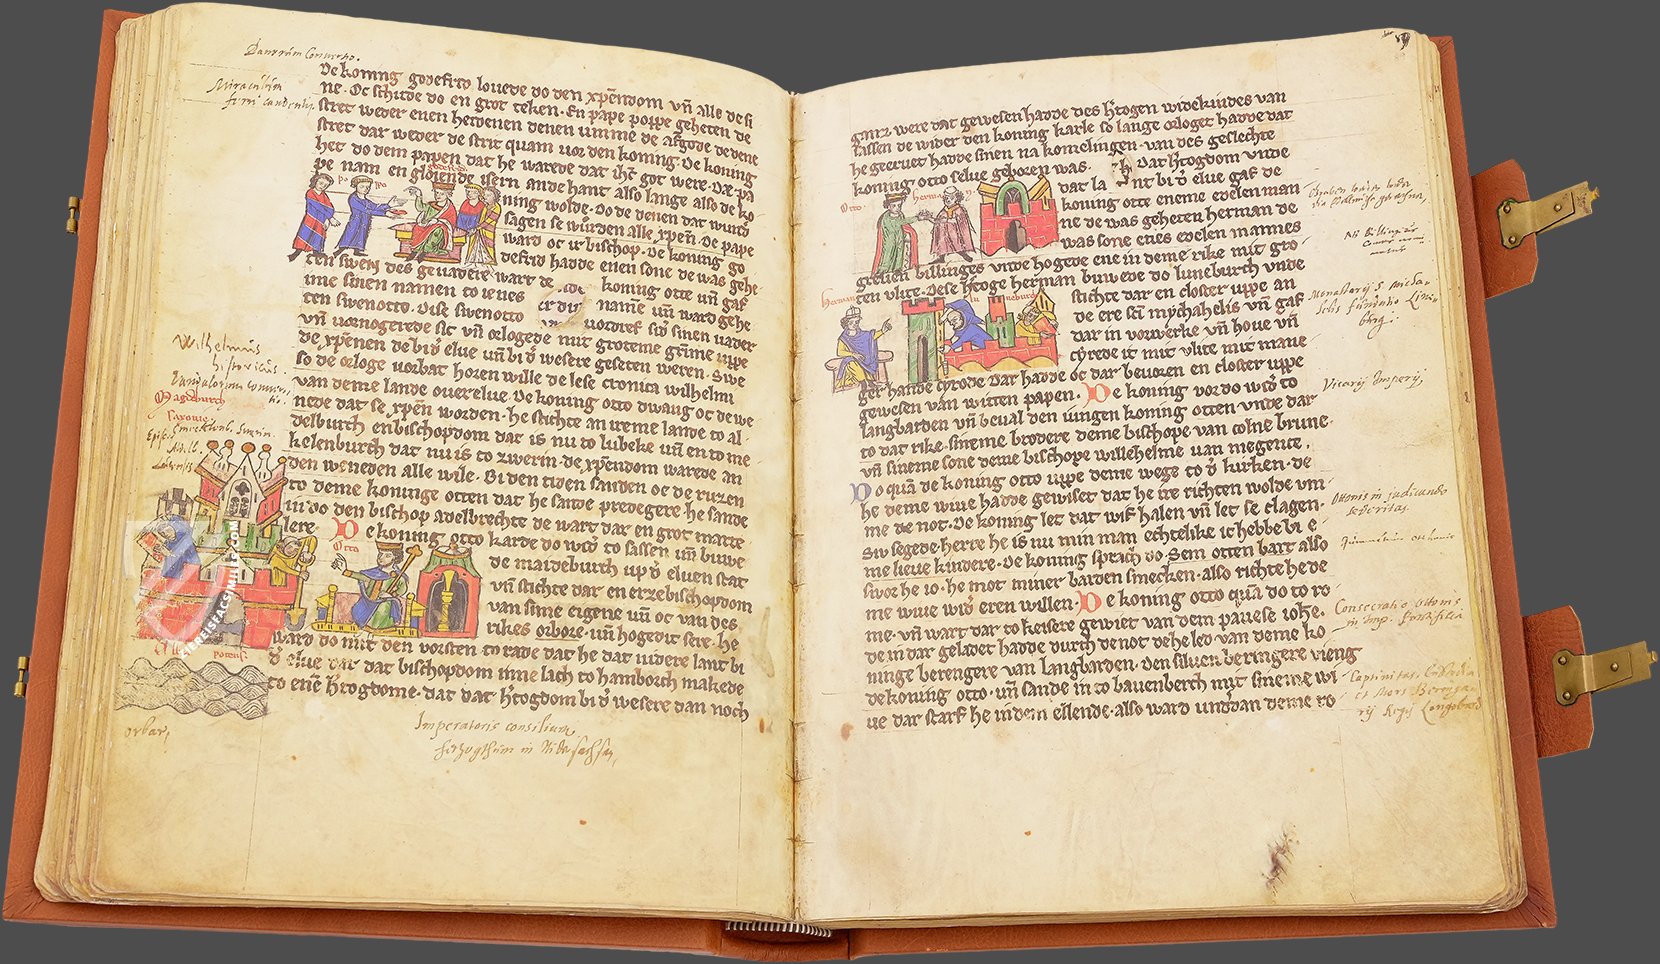 De koning godefrid lovede do den xpēndom vn̄ alle de si
ne. Oc schude do en grot teken. En pape poppe geheten de
stret weder enen heidenen denen umme de afgode de dene
stret dar weder de strit quam vor den koning. De koning
het do dem papen dat he warede dat ih̄c got were. De pa
pe nam en gloiende isern an de hant also lange also de ko
ning wolde. Do de denen dat
sagen se wurden alle xpēn. De pape
ward oc ir bischop. De koning go
defrid hadde enen sone de was gehe
ten swen des gevadere ward de koning otte vn̄ gaf
ime sinen namen to ienes
ten swenotto. Dise swenotto
vn̄ vornogerede sic vn̄ orlogede mit groteme grime uppe
de xpēnen de bi der elve vn̄ bi der wesere geseten weren. Swe
so de orloge vorbat horen wille de lese cronica wilhelmi
van deme lande over elve. De koning otto dwang oc de we
nede dat se xpēn worden. he stichte an ireme lande to al
delburch en bischopdom dat is nu to lubeke vn̄ en to me
kelenburch dat nu is to zwerin. de xpēndom warede an
den weneden alle wile. Bi den tiden sanden oc de ruzen
to deme koninge otten dat he sande predegere he sande
in do den bischop adelbrechte de ward dar en grot marte
lere. De koning otto karde do wid̄ to sassen vn̄ buwe
de maideburch up d̄ elven stat
vn̄ stichte dar en erzebischopdom
van sime eigene vn̄ oc van des
rikes orbore. vn̄ hogedit sere. he
ward do mit den vorsten to rade dat he dat nidere lant bi
d̄ elve dar dat bischopdom inne lach to hamborch makede
to enē h̄togdome. dat dat h̄togdom bi d̄ wesere dan noch
Magdeburch
Otto
Imperatoris consilium
Wilhelmus
historicus.
Miraculum
ferri candentis
ganz were dat gewesen hadde des h̄togen widekindes van
sassen de wider den koning karle so lange orloget hadde dat
he geervet hadde sinen na komelingen. van des geslechte
koning otto selve geboren was. Dat h̄togdom unde
dat la nt bi d̄ elve gaf de
koning otte eneme edelen man
ne de was geheten herman de
was sone enes edelen mannes
greven billinges unde hogede ene in deme rike mit gro
ten vlite. Dese h̄toge herman buwede do luneburch unde
stichte dar en closter uppe an
de ere sc̄i mychahelis vn̄ gaf
dar in vorwerke vn̄ hove vn̄
cyrede it mit vlite mit mane
ger hande cyrode. dar hadde oc dar bevoren en closter uppe
gewesen van witten papen. De koning vor do wid̄ to
langbarden vn̄ beval den iungen koning otten unde dar
to dat rike. sineme brodere deme bischope van colne brune.
vn̄ sineme sone deme bischope willehelme van megence.
Do quā de koning otto uppe deme wege to d̄ kirken. de
he deme wive hadde gewiset dat he ire richten wolde um
me de not. De koning let dat wif halen vn̄ let se clagen.
Siv segede. herre he is nu min man echtelike ic hebbe bi e
me lieve kindere. De koning sprach do. Sem otten bart also
sivor he io. he mot miner barden smecken. also richte he de
me wive wid̄ eren willen. De koning otto quā do to ro
me. vn̄ wart dar to keisere gewiet van dem pavese iohē.
de in dar geladet hadde durch de not de he led van deme ko
ninge berengere van langbarden. Den silven beringere vieng
de koning otto. vn̄ sande in to bavenberch mit sineme wi
ve dar starf he in dem ellende. also ward und̄dan deme ro
Otto
herman
herman
lu neburch
Vicarij Imperij
Ottonis in judicando
severitas.
Consecratio Ottonis
in Imp.
MILESFACSIMILE.COM